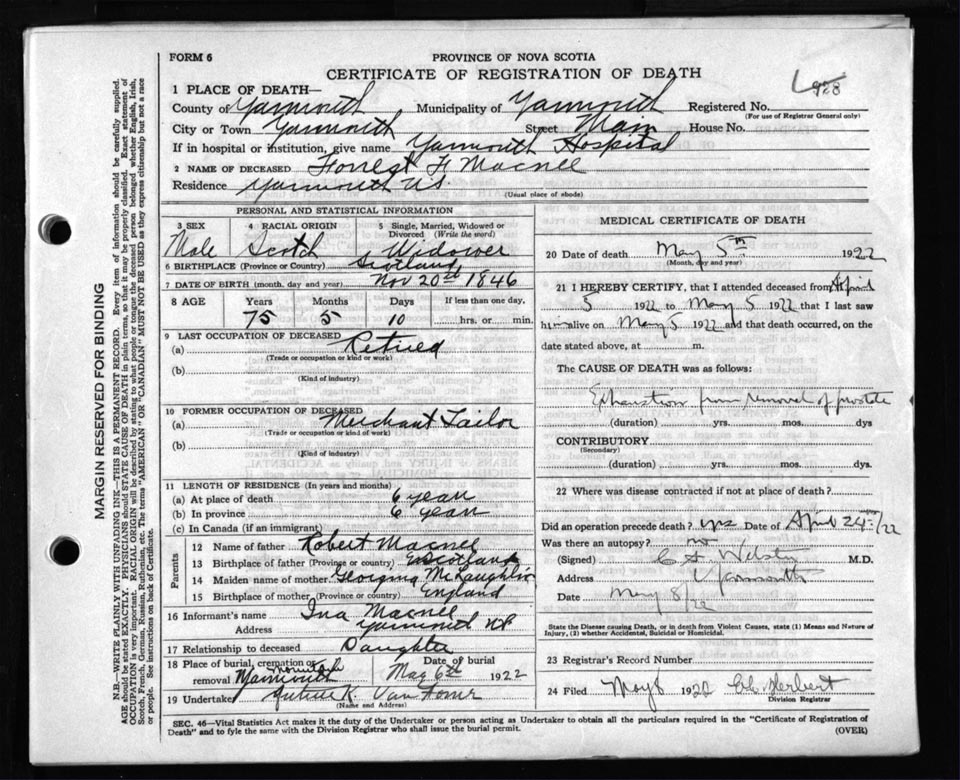 FORM 6
PROVINCE OF NOVA SCOTIA
CERTIFICATE OF REGISTRATION OF DEATH
928
1 PLACE OF DEATH—
County of Yarmouth Municipality of Yarmouth Registered No.
(For use of Registrar General only)
City or Town Yarmouth Street Main House No.
If in hospital or institution, give name Yarmouth Hospital
2 NAME OF DECEASED Forrest F Macnee
Residence Yarmouth NS
(Usual place of abode)
PERSONAL AND STATISTICAL INFORMATION
3 SEX 4 RACIAL ORIGIN 5 Single, Married, Widowed or Divorced (Write the word)
Male Scotch Widower
6 BIRTHPLACE (Province or Country) Scotland
7 DATE OF BIRTH (month, day and year) Nov 20th 1846
8 AGE Years Months Days If less than one day,
75 5 10 hrs. or min.
9 LAST OCCUPATION OF DECEASED
(a) Retired
(Trade or occupation or kind of work)
(b)
(Kind of industry)
10 FORMER OCCUPATION OF DECEASED
(a) Merchant Tailor
(Trade or occupation or kind of work)
(b)
(Kind of industry)
11 LENGTH OF RESIDENCE (In years and months)
(a) At place of death 6 years
(b) In province 6 years
(c) In Canada (if an immigrant)
Parents
12 Name of father Robert Macnee
13 Birthplace of father (Province or country) Scotland
14 Maiden name of mother Georgina McLaughlin
15 Birthplace of mother (Province or country) England
16 Informant's name Ina Macnee
Address Yarmouth NS
17 Relationship to deceased Daughter
18 Place of burial, cremation or removal Mountain Yarmouth Date of burial May 6th 1922
19 Undertaker K. Van Horne
(Name and Address)
MEDICAL CERTIFICATE OF DEATH
20 Date of death May 5th 1922
(Month, day and year)
21 I HEREBY CERTIFY, that I attended deceased from April
5 1922 to May 5 1922 that I last saw
him alive on May 5 1922 and that death occurred, on
date stated above, at m.
The CAUSE OF DEATH was as follows:
Exhaustion from removal of prostate
(duration) yrs. mos. dys
CONTRIBUTORY
(Secondary)
(duration) yrs. mos. dys.
22 Where was disease contracted if not at place of death?
Did an operation precede death? yes Date of April 24th/22
Was there an autopsy? no
(Signed) Webster M.D.
Address Yarmouth
Date May 8/22
State the Disease causing Death, or in death from Violent Causes, state (1) Means and Nature of Injury, (2) whether Accidental, Suicidal or Homicidal.
23 Registrar's Record Number
24 Filed May 8 1922 Herbert
Division Registrar
SEC. 46—Vital Statistics Act makes it the duty of the Undertaker or person acting as Undertaker to obtain all the particulars required in the "Certificate of Registration of
Death" and to fyle the same with the Division Registrar who shall issue the burial permit.
(OVER)
MARGIN RESERVED FOR BINDING
N.B.—WRITE PLAINLY WITH UNFADING INK—THIS IS A PERMANENT RECORD. Every item of information should be carefully supplied.
AGE should be stated EXACTLY. PHYSICIANS should STATE CAUSE OF DEATH in plain terms, so that it may be properly classified. Exact statement of
OCCUPATION is very important. RACIAL ORIGIN will be described by stating to what people or tongue the deceased person belonged whether English, Irish,
Scotch, French, German, Russian, Ruthenian, etc. The terms "AMERICAN" OR "CANADIAN" MUST NOT BE USED as they express citizenship but not a race
or people. See instructions on back of Certificate.